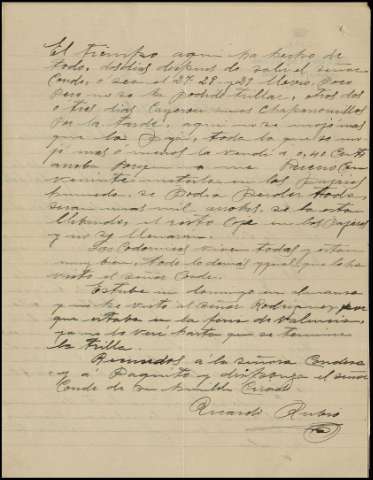 El tiempo aqui ha hecho de
todo, dos dias despues de salir el señor
Conde, o sea el 27, 28 y 29 llovio poco
pero no se ha podido trillar, otros dos
o tres dias cayeron unos chaparroncillos
por la tarde, aqui no se mojo mas
que la paja, toda la que se mo
jo mas o menos la vendi a 0,40 Cent
arroba porque a me
humedo, se podia perder toda,
seran unas mil arrobas, se la estan
llebando, el resto coje en los pajares
y no y llenaran
Las Codornices viven todas y estan
muy bien, todo lo demas ygual que lo ha
visto el señor Conde.
Estube un domingo en Almansa
y no he visto al señor Rodriguez por
que estaba en la feria de Valencia,
ya no lo veré hasta que se termine
la trilla
Recuerdos a la señora Condesa
y a Paquito y disponga el señor
Conde de su humilde Criado
Ricardo Rubio